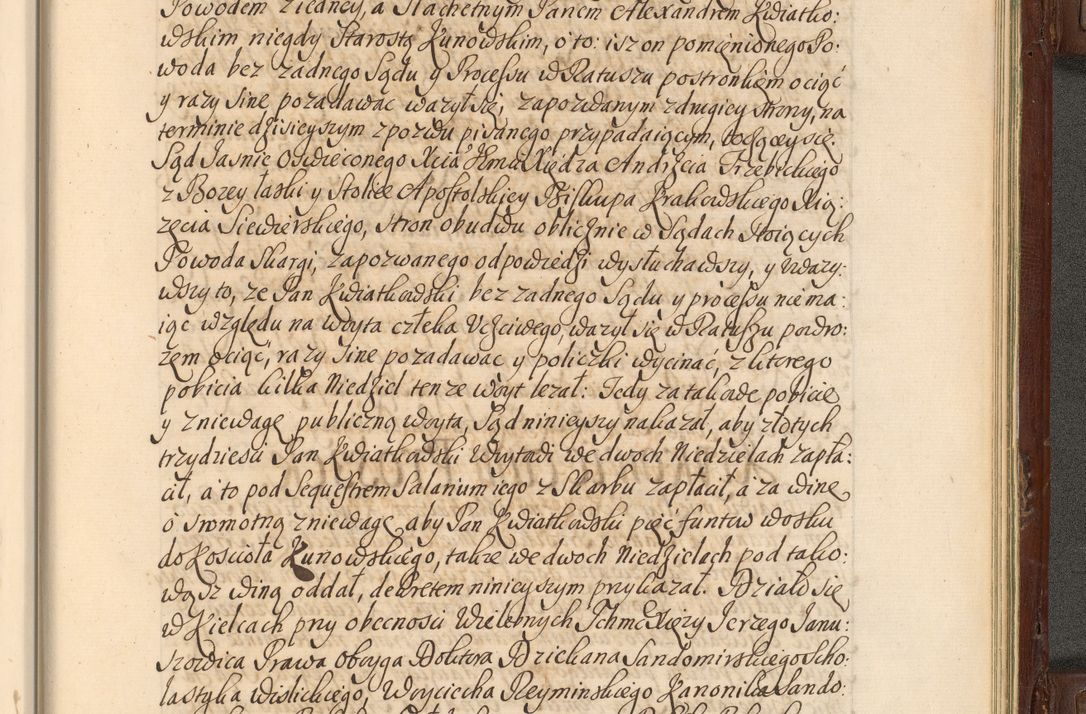 Powodem z iedney, a Slachetnym Panem Alexandrem Kwiatko:
wskim niegdy Starostą Kunowskim, o to: isz on pomienionego Po:
woda bez zadnego Sądu y Processu w Ratuszu postronkiem ociąć
y razy sine pozadawac wazył się, zapozwanym z drugiey strony, na
terminie dzisieyszym z pozwu pisanego przypadaiącym, toczącey się.
Sąd Jasnie Oswieconego Xcia Jmci Xiędza Andrzeia Trzebickiego
z Bozey łaski y Stolice Apostolskiey Biskupa Krakowskiego Xią:
zęcia Siewierskiego, stron obudwu oblicznie w Sądach stoiących
Powoda skargi, zapozwanego odpowiedzi wysłuchawszy, y uwazy:
wszy to, ze Pan Kwiatkowski bez zadnego Sądu y processu nie ma:
iąc względu na woyta człeka Uczciwego, wazył się w Ratuszu powro:
zem ociąć, razy sine pozadawac y policzki wycinać, z ktorego
pobicia kilka Niedziel tenze woyt lezał: Tedy za takowe pobicie
y zniewagę publiczną woyta, Sąd ninieyszy nakazał, aby złotych
trzydziesci Pan Kwiatkowski Woytowi we dwoch Niedzielach zapła:
cił, a to pod Sequestrem Salarium iego z Skarbu zapłacił, a za winę
o sromotną zniewagę aby Pan Kwiatkowski pięć funtow wosku
do Koscioła Kunowskiego, takze we dwoch Niedzielach pod tako:
wąsz winą oddał, dekretem ninieyszym przykazał. Działo się
w Kielcach przy obecnosci Wielebnych Ichmc Xięzy Jerzego Janu:
szowica Prawa Oboyga Doktora Dziekana Sandomirskiego Scho:
lastyka wislickiego, Woyciecha Reyminskiego Kanonika Sando: